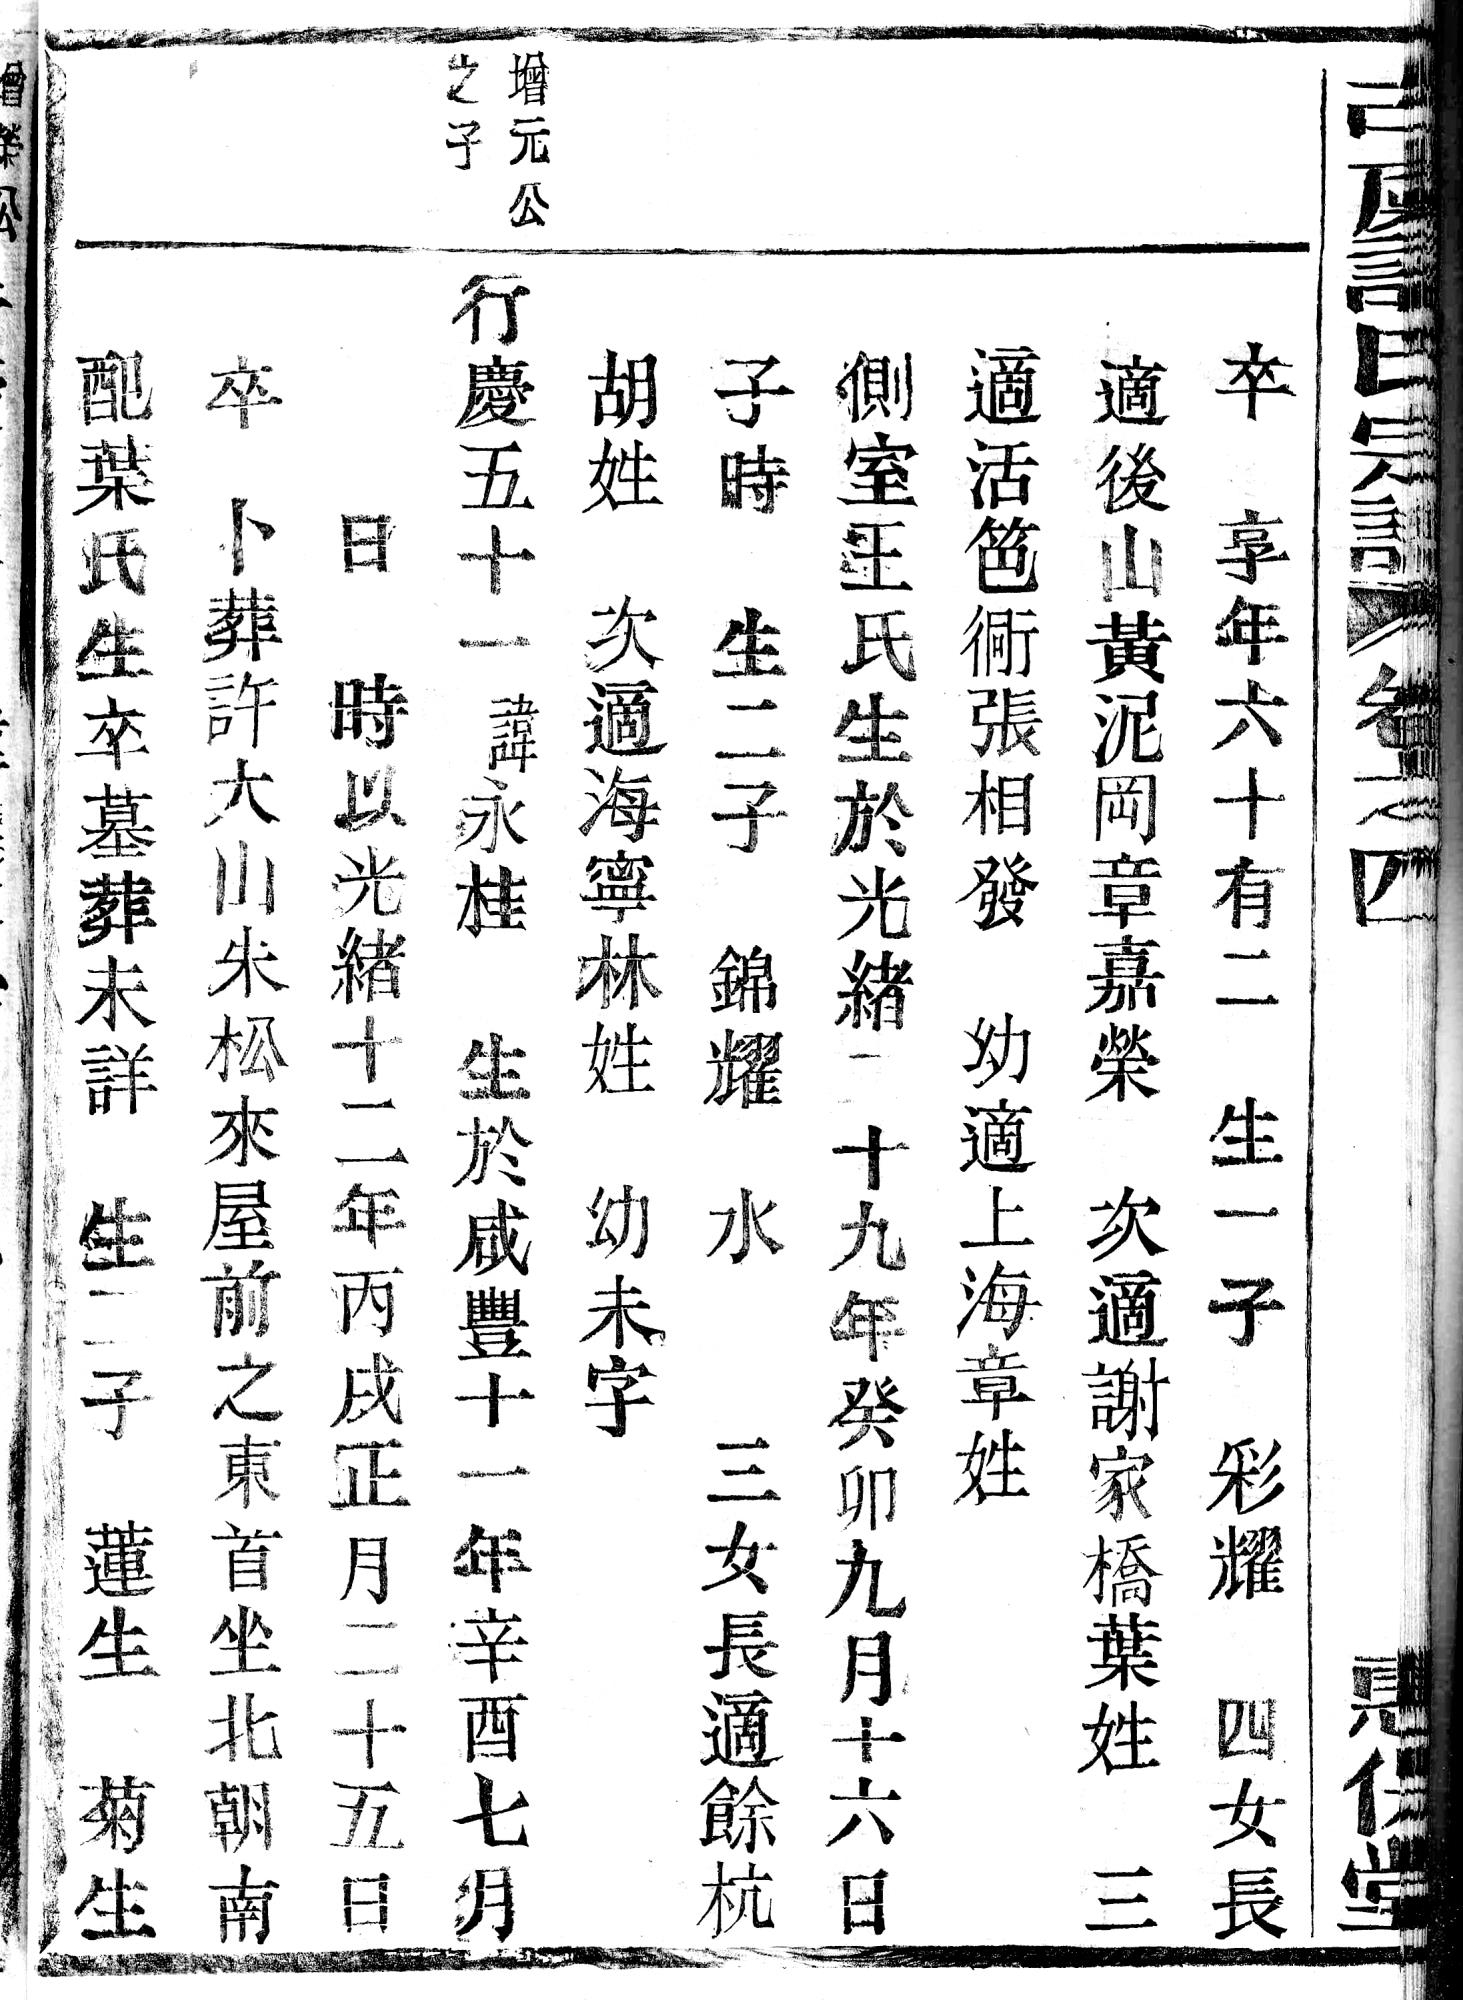 氏宗譜 卷之四
堂
卒 享年六十有二 生一子 彩耀 四女長
適後山黃泥岡章嘉榮 次適謝家橋葉姓 三
適活笆衕張相發 幼適上海章姓
側室王氏生於光緒二十九年癸卯九月十六日
子時 生二子 錦耀 水 三女長適餘杭
胡姓 次適海寧林姓 幼未字
增元公
之子
行慶五十一 諱永桂 生於咸豐十一年辛酉七月
日 時以光緒十二年丙戌正月二十五日
卒 卜葬許大山朱松來屋前之東首坐北朝南
配葉氏生卒墓葬未詳 生二子 蓮生 菊生